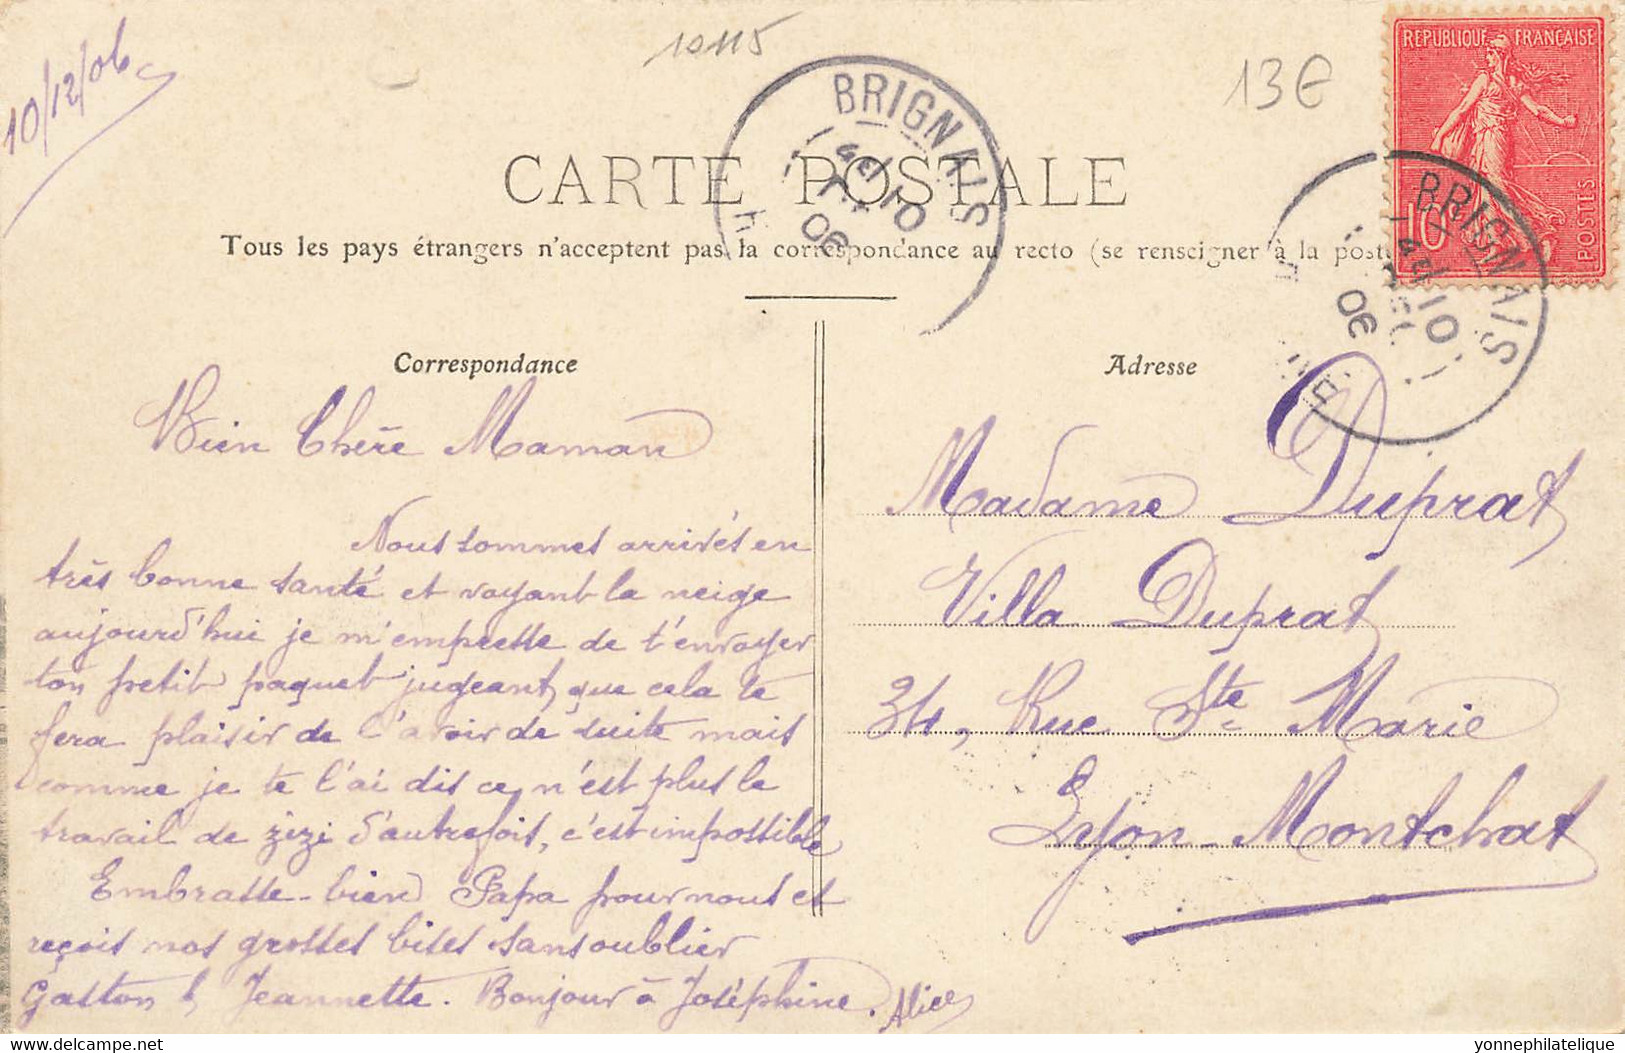 10/12/06
10115
13€
REPUBLIQUE FRANÇAISE
POSTES
10
BRIGNAIS
10
06
BRIGNAIS
10
06
CARTE POSTALE
Tous les pays étrangers n'acceptent pas la correspondance au recto (se renseigner à la post
Correspondance
Bien Chère Maman
Nous sommes arrivés en
très bonne santé et voyant la neige
aujourd'hui je m'empresse de t'envoyer
ton petit paquet jugeant que cela te
fera plaisir de l'avoir de suite mais
comme je te l'ai dis ce n'est plus le
travail de zizi d'autrefois, c'est impossible
Embrasse-bien Papa pour nous et
reçois nos grosses bises sans oublier
Gaston & Jeannette. Bonjour à Joséphine.
Alice
Adresse
Madame Duprat
Villa Duprat
34, Rue Ste Marie
Lyon-Montchat
delcampe.net
yonnephilatelique